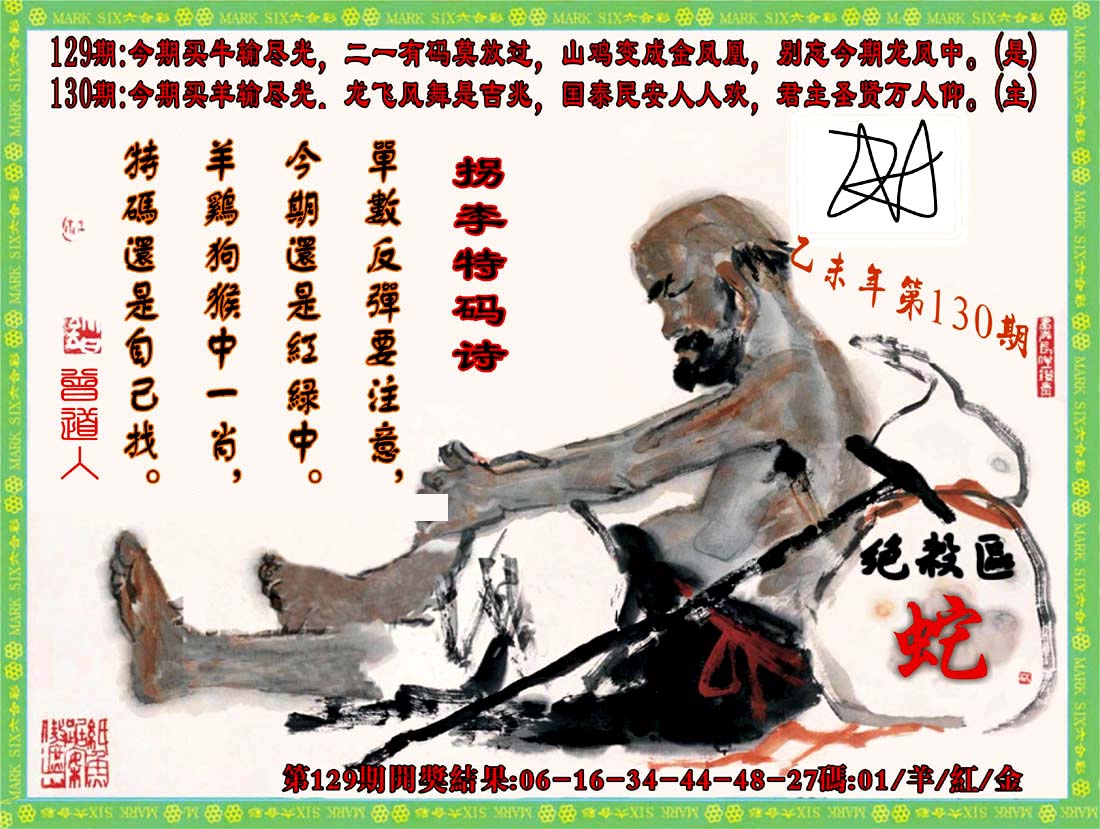 MARK SIX六合彩
129期:今期买牛输尽光，二一有码莫放过，山鸡变成金凤凰，别忘今期龙凤中。(是)
130期:今期买羊输尽光．龙飞风舞是吉兆，国泰民安人人欢，君主圣贤万人仰。(主)
乙未年第130期
拐李特码诗
單數反彈要注意，
今期還是紅緑中。
羊鷄狗猴中一肖，
特碼還是自己找。
曾道人
绝殺區
蛇
第129期開獎結果:06-16-34-44-48-27碼:01/羊/紅/金